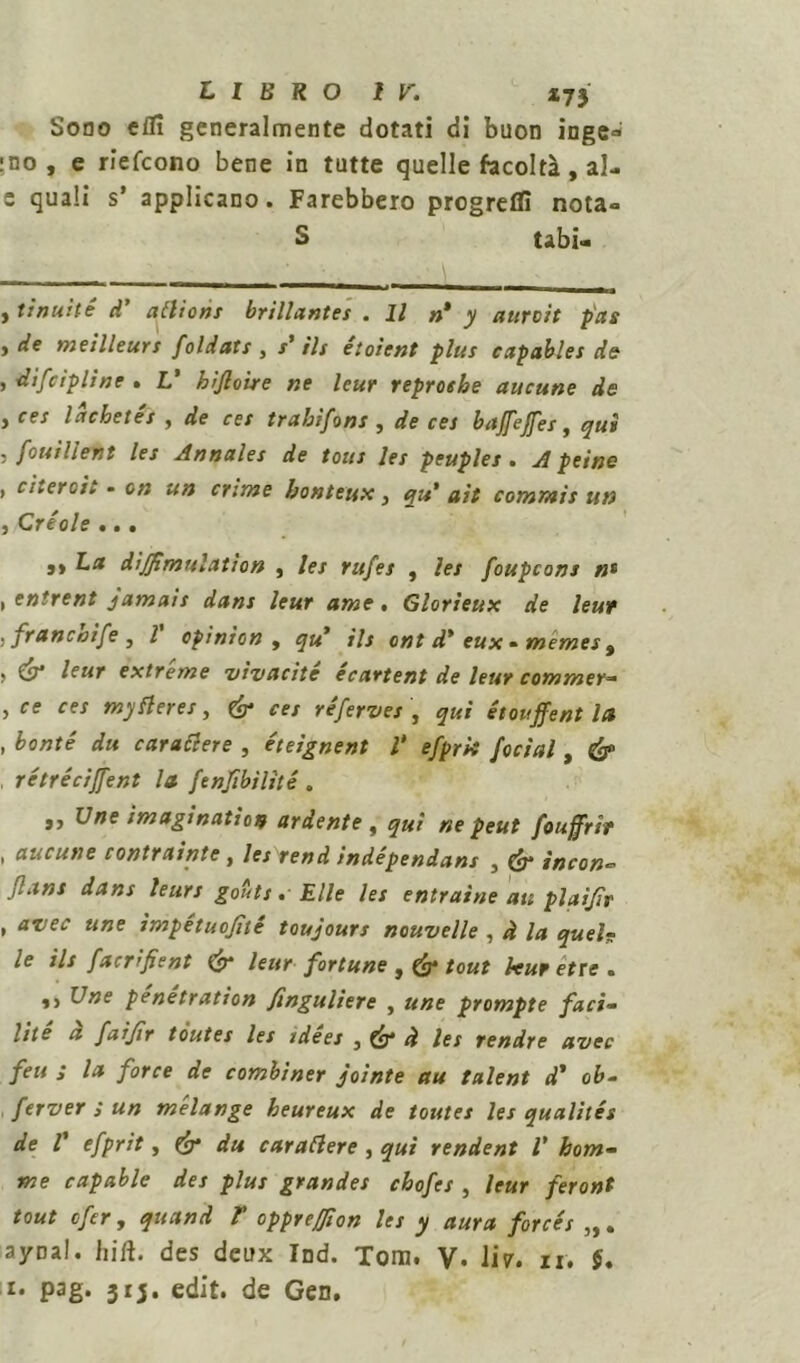 LIBRO IV. 273
Sono essi generalmente dotati di buon inge-
gno , e riescono bene in tutte quelle facoltà , al-
e quali s' applicano . Farebbero progressi nota-
S tabi-
, tinuité d' actions brillantes . Il n' y auroit pas
, de meilleurs soldats , s' ils étoient plus capables de
, discipline . L' histoire ne leur reproche aucune de
, ces lâchetés , de ces trahisons , de ces bassesses , qui
, souillent les Annales de tous les peuples . A peine
, citeroit - on un crime honteux , qu' ait commis un
, Créole ...
,, La dissimulation , les ruses , les soupcons ne
, entrent jamais dans leur ame . Glorieux de leur
, franchise , l' opinion , qu' ils ont d' eux - mêmes ,
, & leur extrême vivacité écartent de leur commer-
, ce ces mysteres , & ces réserves , qui étouffent la
, bonté du caractere , éteignent l' esprit social , &
rétrécissent la sensibilité .
,, Une imagination ardente , qui ne peut souffrir
, aucune contrainte , les rend indépendans , & incon-
stans dans leurs goûts . Elle les entraine au plaisir
, avec une impétuosité toujours nouvelle , à la quel-
le ils sacrifient & leur fortune , & tout leur être .
,, Une pénétration singuliere , une prompte faci-
lité à saisir toutes les idées , & à les rendre avec
feu ; la force de combiner jointe au talent d' ob-
server ; un mélange heureux de toutes les qualités
de l' esprit , & du caractere , qui rendent l' hom-
me capable des plus grandes choses , leur feront
tout oser , quand l' oppression les y aura forcés ,, .
aynal. hist. des deux Ind. Tom. V. liv. 11. §.
1. pag. 315. edit. de Gen.